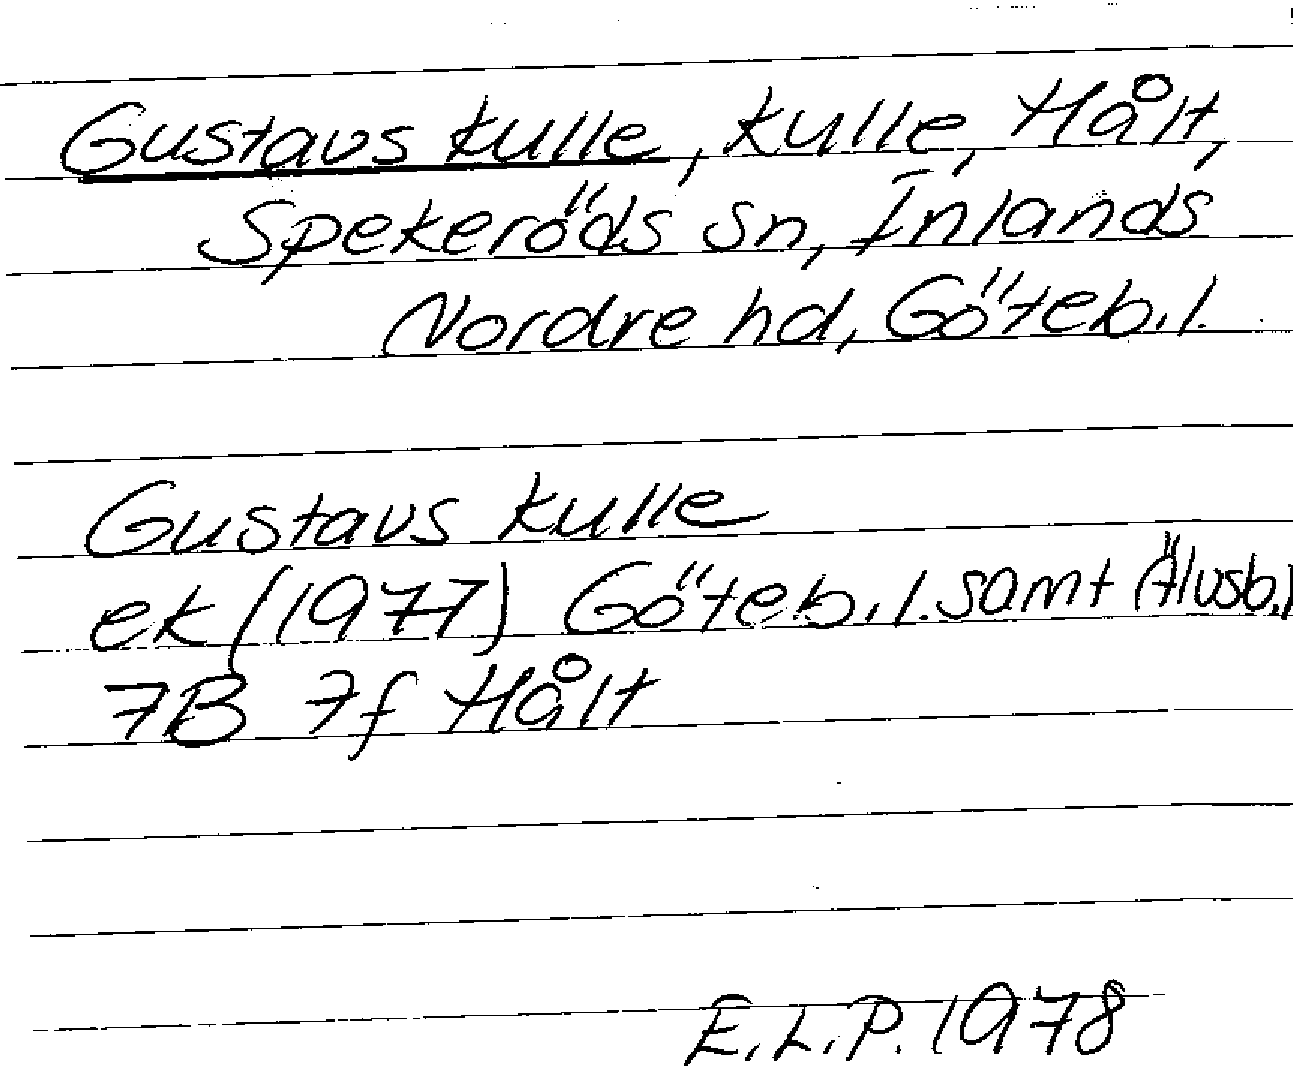 Gustavs kulle, kulle, Hålt,
Spekeröds sn, Inlands
Nordre hd, Göteb.l.
Gustavs kulle
ek (1977) Göteb.l. samt Älvsb.l
7B 7f Hålt
E.L.P. 1978